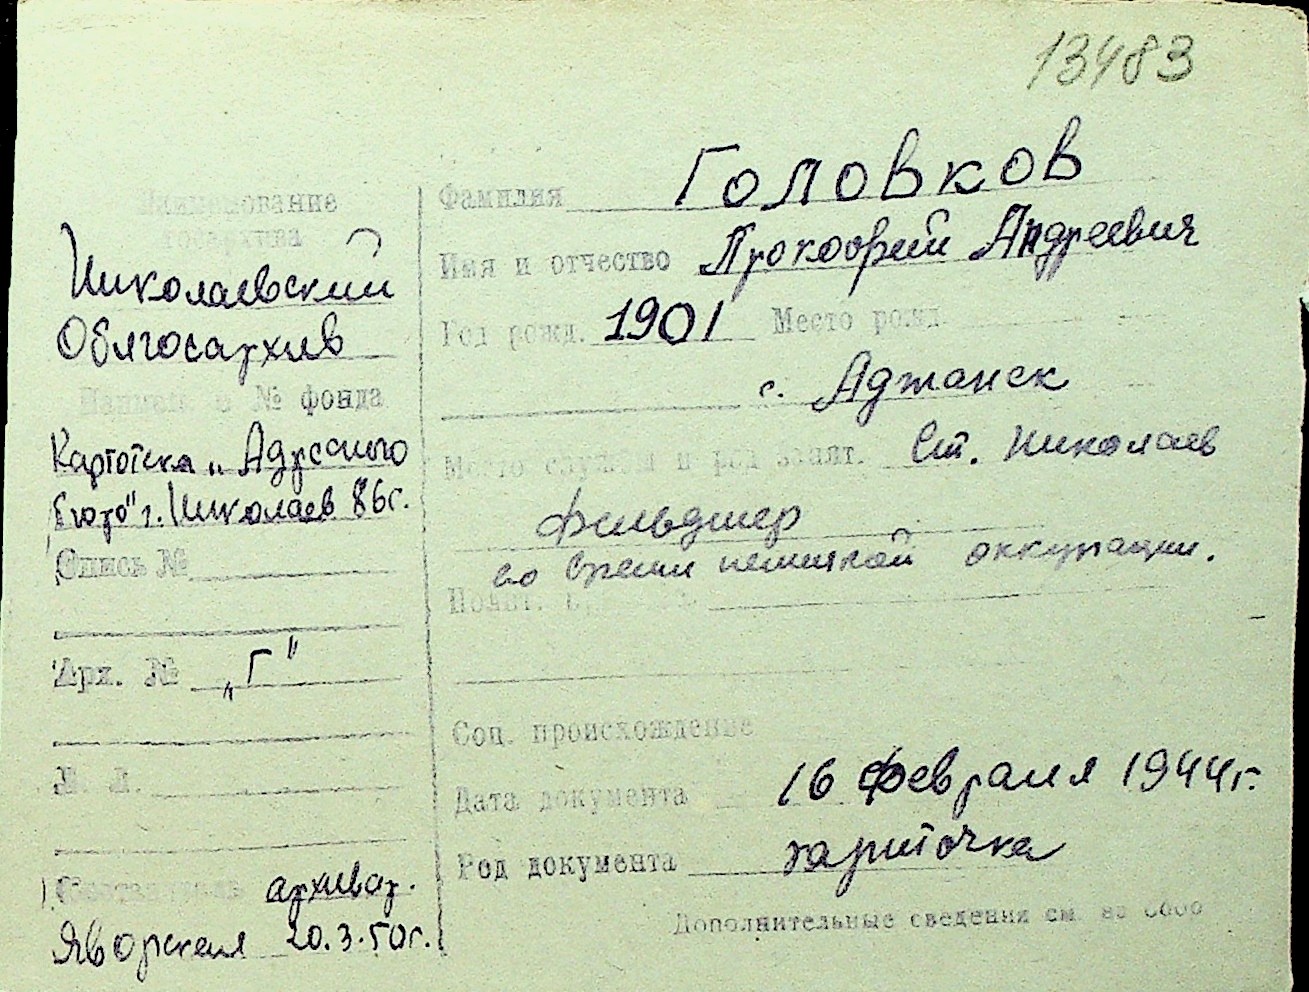 13483
Наименование
госархива
Николаевский
Облгосархив
Наимен. и № фонда
Картотека „Адресного
бюро" г. Николаев 86г.
Опись №
Арх. № „Г"
№ л.
Составитель архивар.
Яворская 20.3.50г.
Фамилия Головков
Имя и отчество Прокофий Андреевич
Год рожд. 1901 Место рожд.
с. Аджанск
Место службы и род занят. Ст. Николаев
фельдшер
во время немецкой оккупации.
Соц. происхождение
Дата документа 16 февраля 1944г.
Род документа карточка
Дополнительные сведения см. на обор